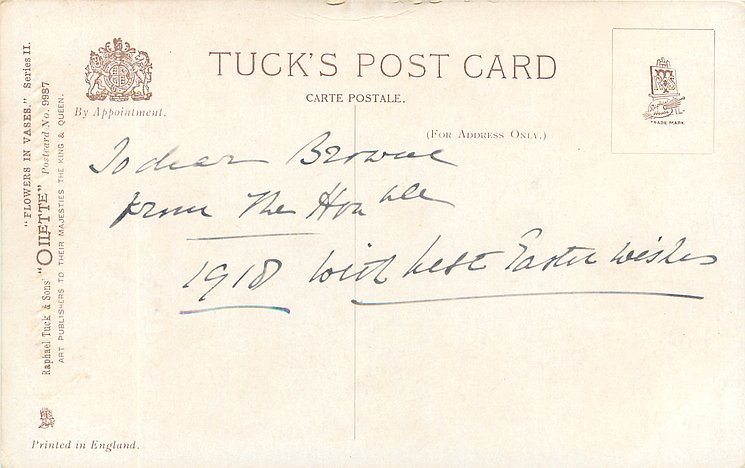 TUCK'S POST CARD
CARTE POSTALE.
By Appointment.
(FOR ADDRESS ONLY.)
TRADE MARK.
To dear Browne
from The Hon ble
1918 with best Easter wishes
"FLOWERS IN VASES." Series II.
Raphael Tuck & Sons' "OILETTE" Postcard No. 9987
ART PUBLISHERS TO THEIR MAJESTIES THE KING & QUEEN.
Printed in England.